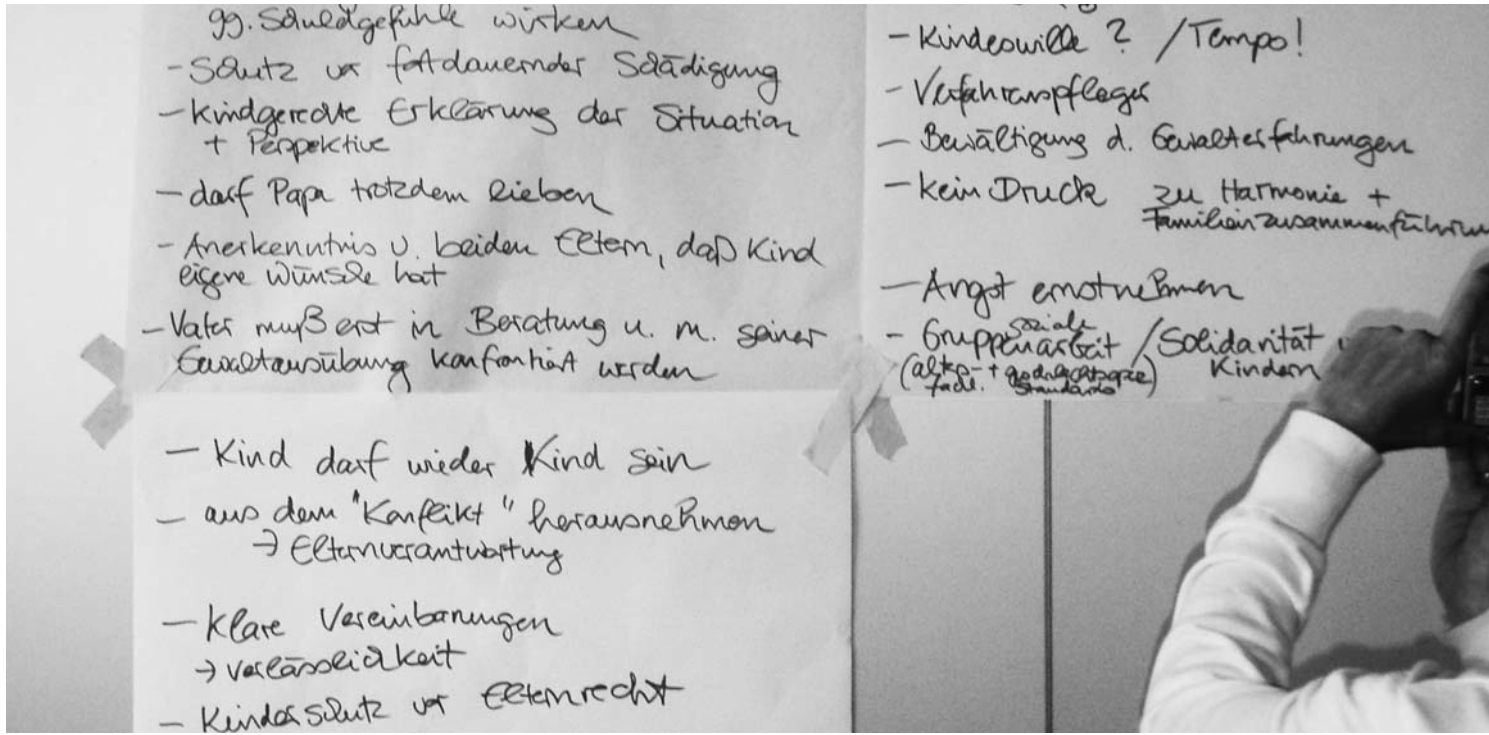 gg. Schuldgefühle wirken
- Schutz vor fortdauernder Schädigung
- Kindgerechte Erklärung der Situation
+ Perspektive
- darf Papa trotzdem lieben
- Anerkenntnis v. beiden Eltern, daß Kind
eigene Wünsche hat
- Vater muß erst in Beratung u. m. seiner
Gewaltausübung konfrontiert werden
- Kind darf wieder Kind sein
- aus dem "Konflikt" herausnehmen
→ Elternverantwortung
- Klare Vereinbarungen
→ Verlässlichkeit
- Kinderschutz vor Elternrecht
- Kindeswille ? / Tempo!
- Verfahrenspfleger
- Bewältigung d. Gewalterfahrungen
- kein Druck zu Harmonie +
Familienzusammenführun
- Angst ernstnehmen
- soziale
Gruppenarbeit / Solidarität
(alters- + geschlechtsspez.) Kindern
fachl. Standards